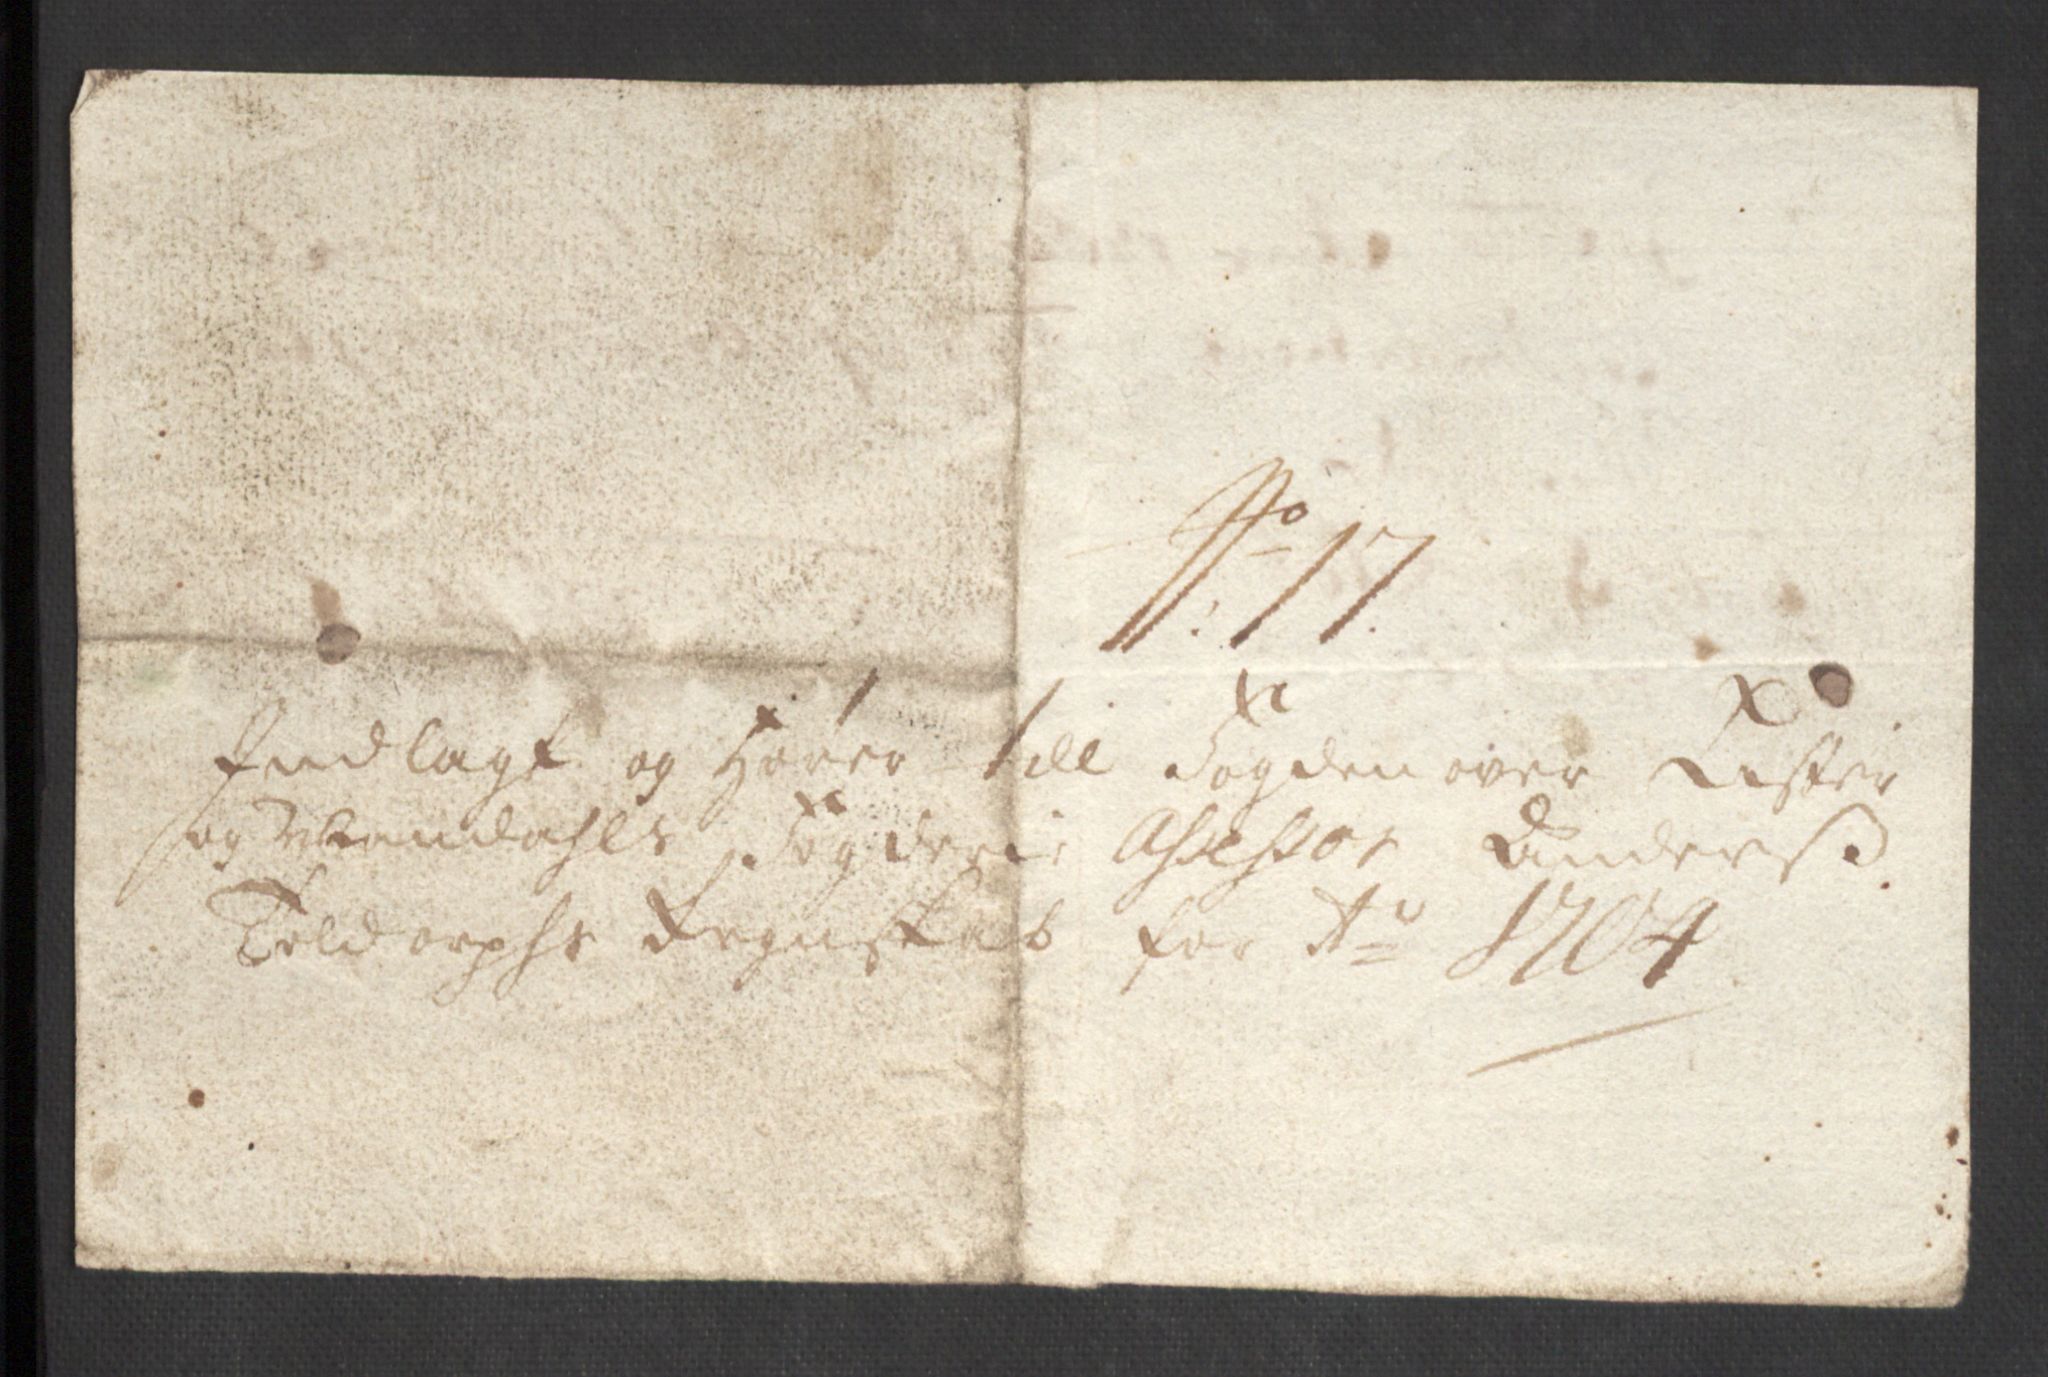 No: 17.
Indlagt og Hører till Fogden over Lister
og Mandahls Fogderie Assessor Anderss
Toldorphs Regnskab for Ao 1704